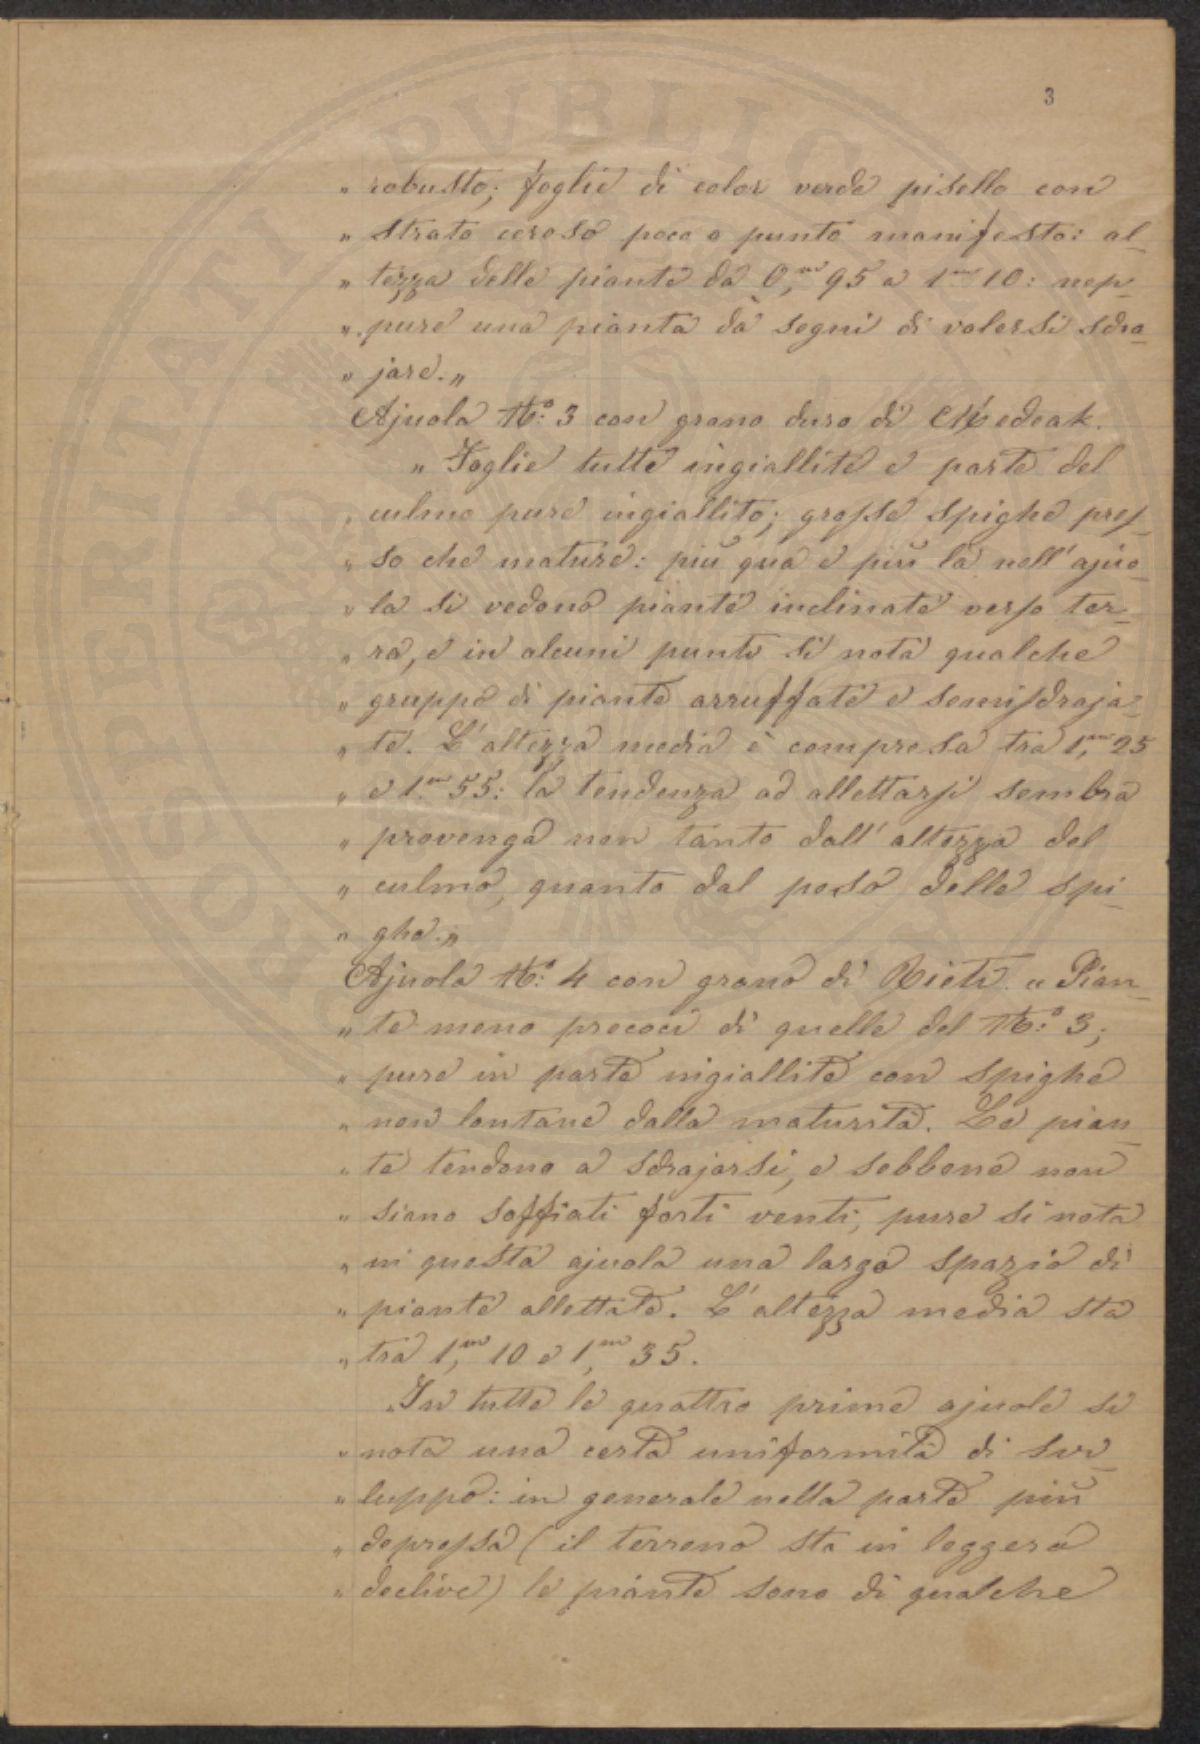 3
„ robusto; foglie di color verde pisello con
„ strato ceroso poco o punto manifesto: al-
„ tezza delle piante da 0,m 95 a 1m 10: nep-
„ pure una pianta dà segni di volersi sdra-
„ jare. „
Ajuola No: 3 con grano duro di Medeak.
„ Foglie tutte ingiallite e parte del
„ culmo pure ingiallito; grosse spighe pres-
„ so che mature: più qua e più là nell'ajuo-
„ la si vedono piante inclinate verso ter-
„ ra, e in alcuni punti si nota qualche
„ gruppo di piante arruffate e semisdraja-
„ te. L'altezza media è compresa tra 1,m 25
„ e 1m 55: la tendenza ad allettarsi sembra
„ provenga non tanto dall'altezza del
„ culmo, quanto dal peso delle spi-
„ ghe. „
Ajuola No: 4 con grano di Rieti. „ Pian-
„ te meno precoci di quelle del No: 3;
„ pure in parte ingiallite con spighe
„ non lontane dalla maturità. Le pian-
„ te tendono a sdrajarsi, e sebbene non
„ siano soffiati forti venti, pure si nota
„ in questa ajuola una largo spazio di
„ piante allettate. L'altezza media sta
„ tra 1,m 10 e 1,m 35.
„ In tutte le quattro prime ajuole si
„ nota una certa uniformità di svi-
„ luppo: in generale nella parte più
„ depressa (il terreno sta in leggera
„ declive) le piante sono di qualche
PROSPERITATI PVBLICAE